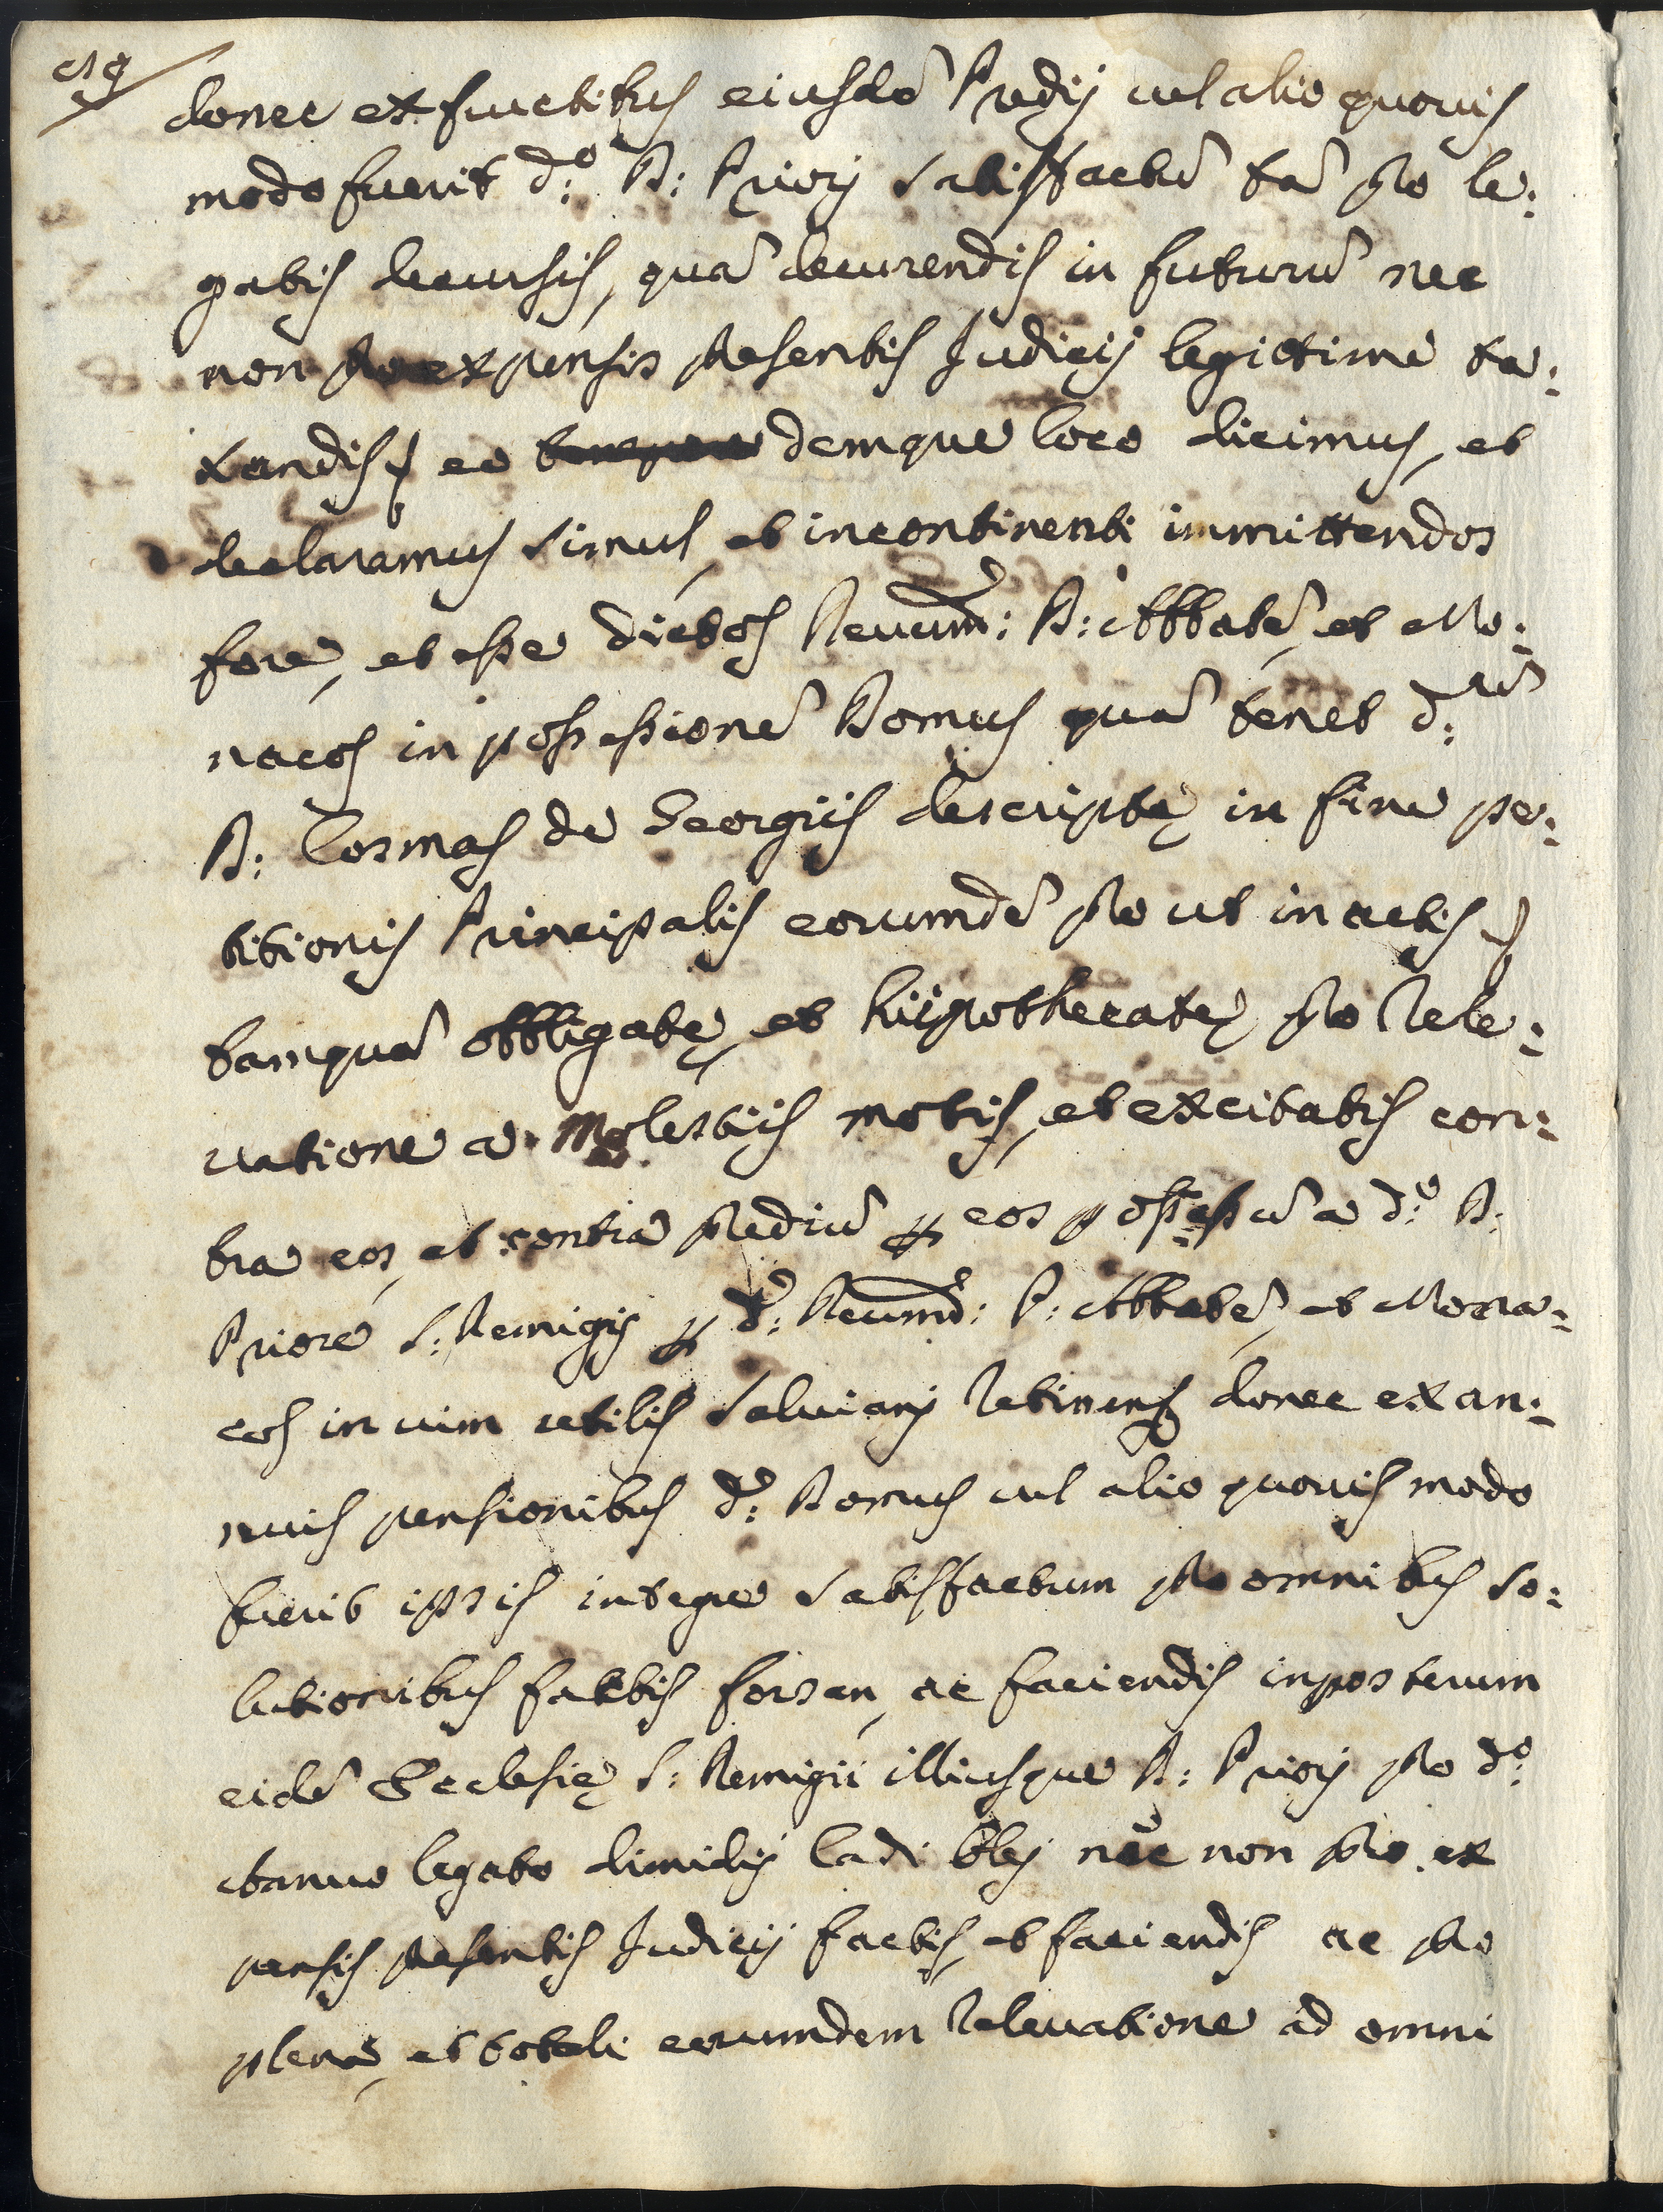 donec ex fructibus eiusdē Predij vel alio quovis
modo fuerit d:º D: Priori satisfactū tā pro le:
gatis decursis, quā decurrendis in futurū nec
non pro expensis presentis Judicij legittime ta:
xandis, eo demque loco dicimus, et
declaramus simul, et incontinenti immittendos
fore, et esse dictos Reverend: D: Abbatē, et Mo:
nacos in possessionē Domus quā tenet d:
D: Cosmas de Georgiis descriptę in fine pe:
titionis Principalis eorumdē pro ut in actis
tamquā obbligatę, et hijpothecatę pro rele:
vatione a molestiis motis, et excitatis con:
tra eos, et contra prediū per eos possessū a d:º D:
Priore S: Remigij per d: Reverend: D: Abbatē, et Mona:
cos in vim utilis salviani retinen donec ex an:
nuis pensionibus d: Domus vel alio quovis modo
fuerit ipsis integre satisfactum pro omnibus so:
lutionibus fattis forsan, ac faciendis inposterum
eidē Ecclesię S: Remigii illiusque D: Priori pro d:º
annuo legato dimidij Cadi olej nec non pro ex
pensis presentis Judicij factis, et faciendis ac pro
plena, et totali eorumdem relevatione ad omni